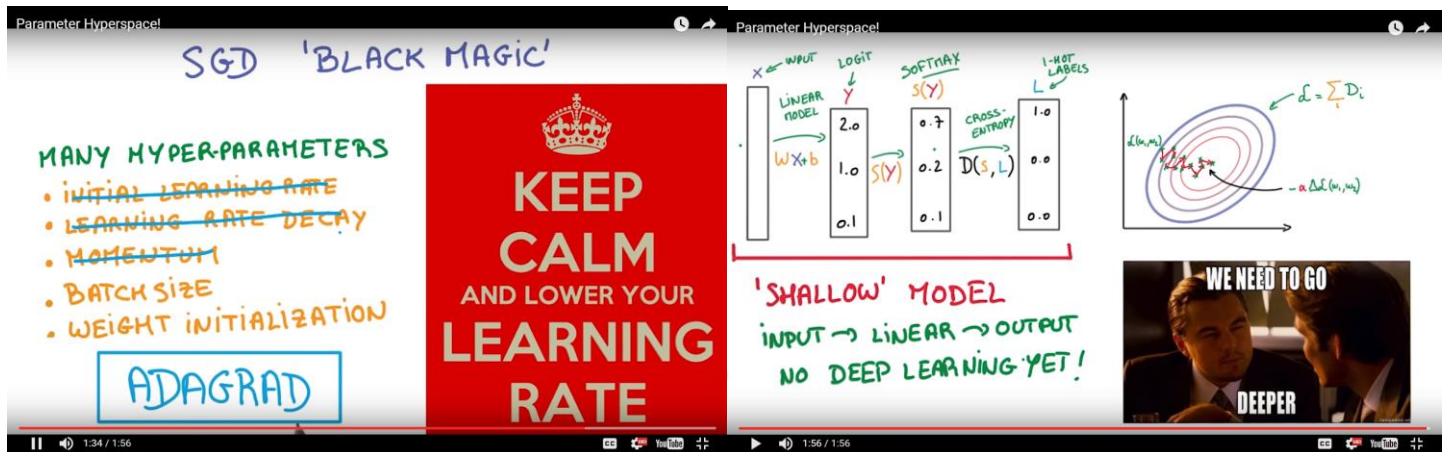 Parameter Hyperspace!
SGD 'BLACK MAGIC'
MANY HYPER-PARAMETERS
• INITIAL LEARNING RATE
• LEARNING RATE DECAY
• MOMENTUM
• BATCH SIZE
• WEIGHT INITIALIZATION
ADAGRAD
KEEP
CALM
AND LOWER YOUR
LEARNING
RATE
1:34 / 1:56
CC
YouTube
Parameter Hyperspace!
X ← INPUT
LINEAR
MODEL
WX+b
LOGIT
Y
2.0
1.0
0.1
S(Y)
SOFTMAX
S(Y)
0.7
0.2
0.1
CROSS-
ENTROPY
D(S,L)
1-HOT
LABELS
L
1.0
0.0
0.0
'SHALLOW' MODEL
INPUT → LINEAR → OUTPUT
NO DEEP LEARNING YET!
ℒ = Σi Di
ℒ(w₁,w₂)
-α Δℒ(w₁,w₂)
WE NEED TO GO
DEEPER
1:56 / 1:56
CC
YouTube